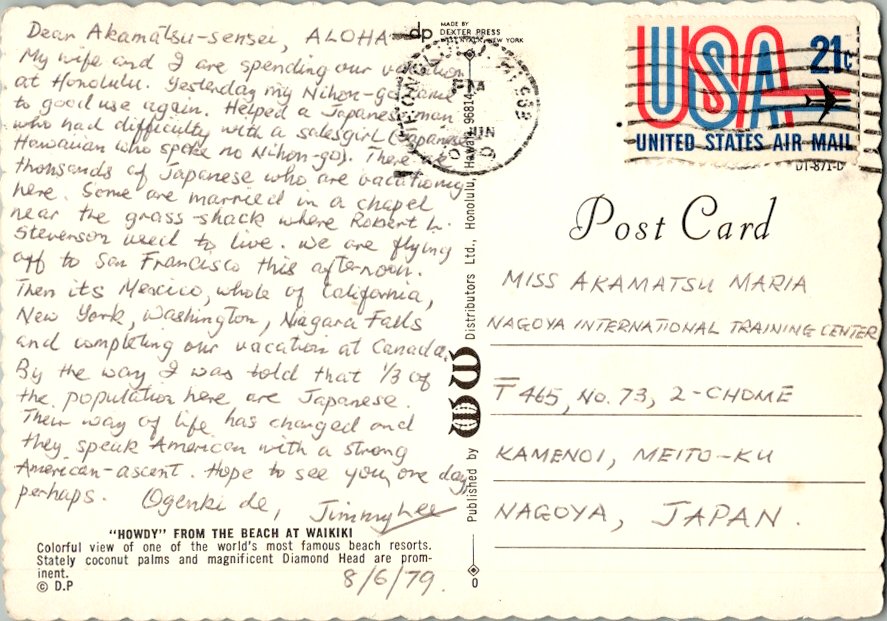 Dear Akamatsu-sensei, ALOHA
My wife and I are spending our vacation
at Honolulu. Yesterday my Nihon-go came
to good use again. Helped a Japanese man
who had difficulty with a salesgirl (Japanese
Hawaiian who spoke no Nihon-go). There are
thousands of Japanese who are vacationing
here. Some are married in a chapel
near the grass-shack where Robert L.
Stevenson used to live. We are flying
off to San Francisco this afternoon.
Then its Mexico, whole of California,
New York, Washington, Niagara Falls
and completing our vacation at Canada.
By the way I was told that 1/3 of
the population here are Japanese.
Their way of life has changed and
they speak American with a strong
American-ascent. Hope to see you, one day
perhaps. Ogenki de, Jimmy Lee
"HOWDY" FROM THE BEACH AT WAIKIKI
Colorful view of one of the world's most famous beach resorts.
Stately coconut palms and magnificent Diamond Head are prom-
inent.
© D.P
8/6/79.
dp
MADE BY
DEXTER PRESS
NEW YORK
Published by WW Distributors Ltd., Honolulu, Hawaii 96814
PM
JUN
USA 21c
UNITED STATES AIR MAIL
DT-871-D
Post Card
MISS AKAMATSU MARIA
NAGOYA INTERNATIONAL TRAINING CENTER
〒465, NO. 73, 2-CHOME
KAMENOI, MEITO-KU
NAGOYA, JAPAN.